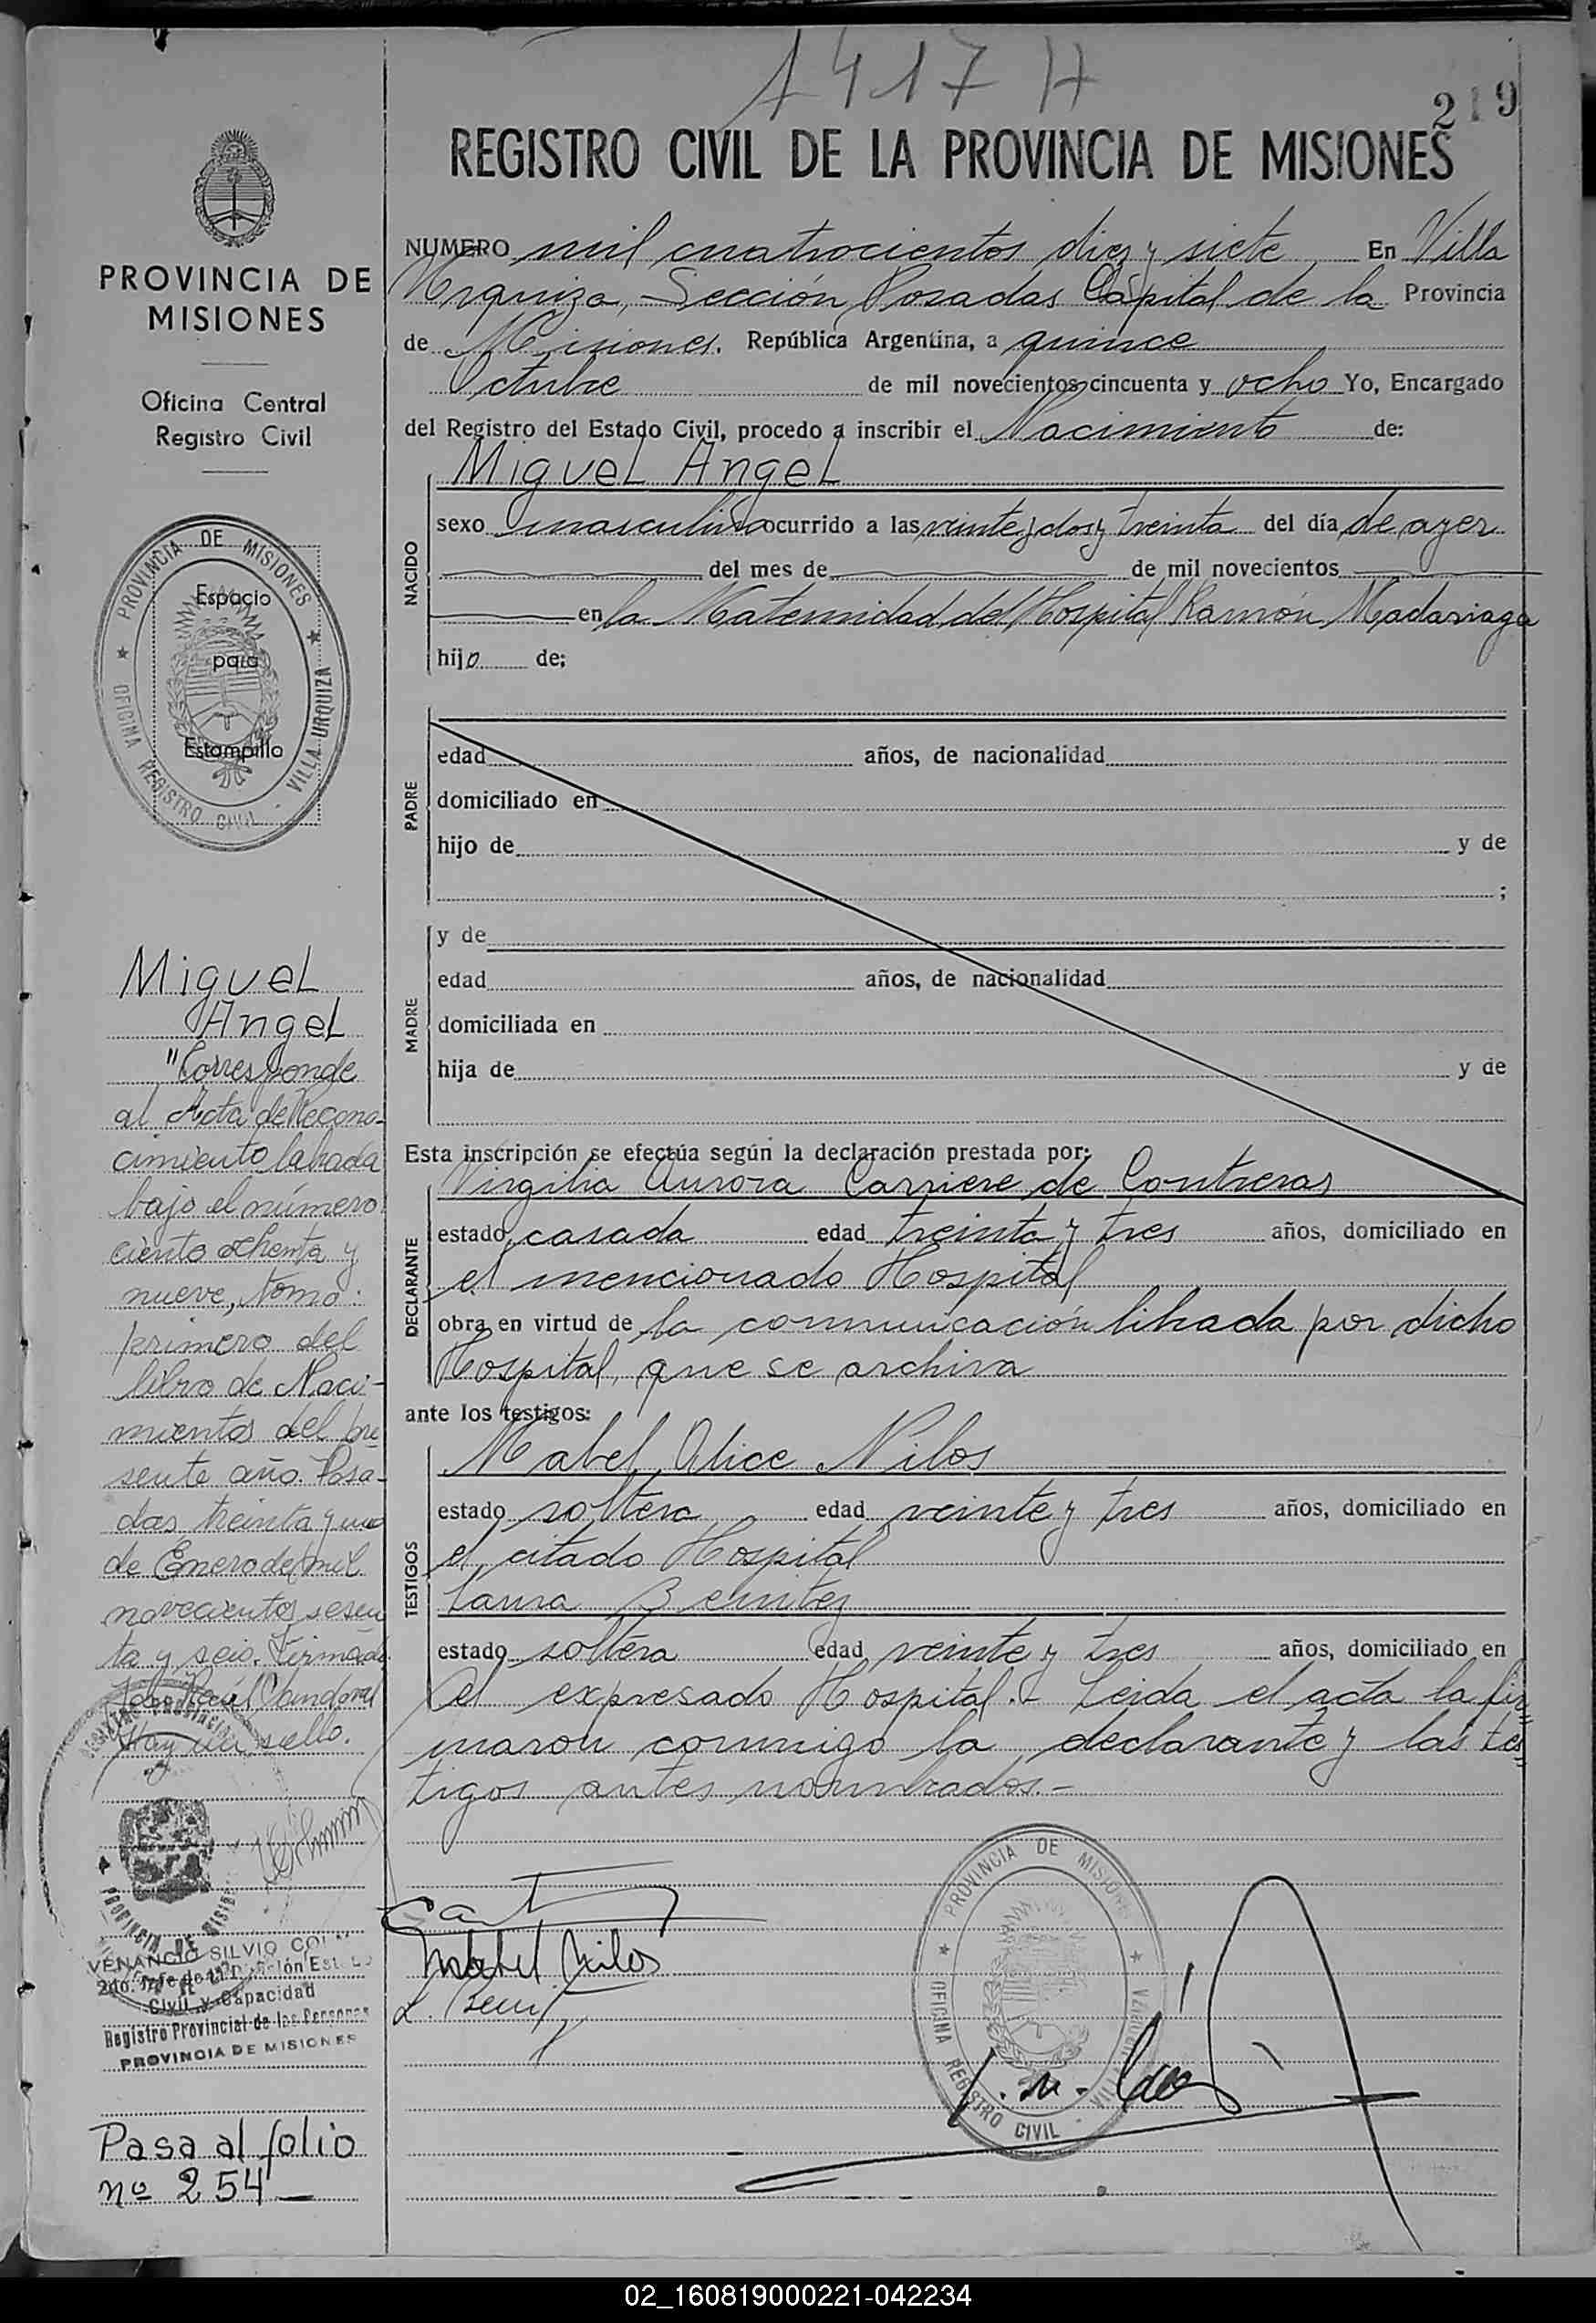 1417 H
219
REGISTRO CIVIL DE LA PROVINCIA DE MISIONES
PROVINCIA DE
MISIONES
Oficina Central
Registro Civil
PROVINCIA DE MISIONES
OFICINA REGISTRO CIVIL - VILLA URQUIZA
Espacio
para
Estampilla
Miguel
Angel
"Corresponde
al Acta de Recono-
cimiento labrada
bajo el número
ciento ochenta y
nueve, tomo:
primero del
libro de Naci-
mientos del pre
sente año. Posa-
das treinta y uno
de Enero de mil
novecientos sesen
ta y seis. Firmado
Raúl Sandoval
Hay un sello.
VENANCIO SILVIO
2do. Jefe de
Civil y Capacidad
Registro Provincial de las Personas
PROVINCIA DE MISIONES
Pasa al folio
nº 254
NUMERO mil cuatrocientos diez y siete En Villa
Urquiza, Sección Posadas Capital de la Provincia
de Misiones. República Argentina, a quince
Octubre de mil novecientos cincuenta y ocho Yo, Encargado
del Registro del Estado Civil, procedo a inscribir el Nacimiento de:
Miguel Angel
NACIDO
sexo masculino ocurrido a las veinte y dos y treinta del día de ayer
del mes de de mil novecientos
en la Maternidad del Hospital Ramón Madariaga
hijo de;
PADRE
edad años, de nacionalidad
domiciliado en
hijo de y de
;
MADRE
y de
edad años, de nacionalidad
domiciliada en
hija de y de
Esta inscripción se efectúa según la declaración prestada por:
DECLARANTE
Virgilia Aurora Carriere de Contreras
estado casada edad treinta y tres años, domiciliado en
el mencionado Hospital
obra en virtud de la comunicación librada por dicho
Hospital, que se archiva
ante los testigos:
TESTIGOS
Mabel Alice Nilos
estado soltera edad veinte y tres años, domiciliado en
el citado Hospital
Laura Benitez
estado soltera edad veinte y tres años, domiciliado en
el expresado Hospital.- Leida el acta la fir
maron conmigo la declarante y las tes
tigos antes nombrados.-
Mabel Nilos
PROVINCIA DE MISIONES
OFICINA REGISTRO CIVIL - VILLA URQUIZA
02_160819000221-042234